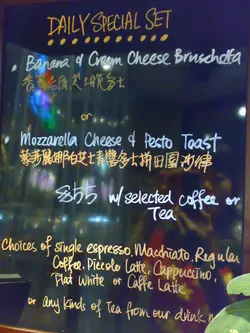 DAILY SPECIAL SET
Banana & Cream Cheese Bruschetta
香蕉忌廉芝士多士
or
Mozzarella Cheese & Pesto Toast
芝士青醬多士拼田園沙律
$55 w/ selected coffee or
Tea
Choices of single espresso, Macchiato, Regular
Coffee, Piccolo Latte, Cappuccino,
Flat White or Caffe Latte
or any kinds of Tea from our drink